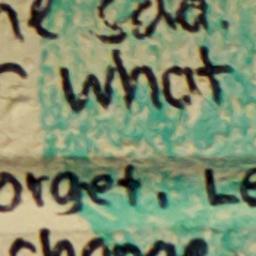 he sad.
r what
orget. Le
change